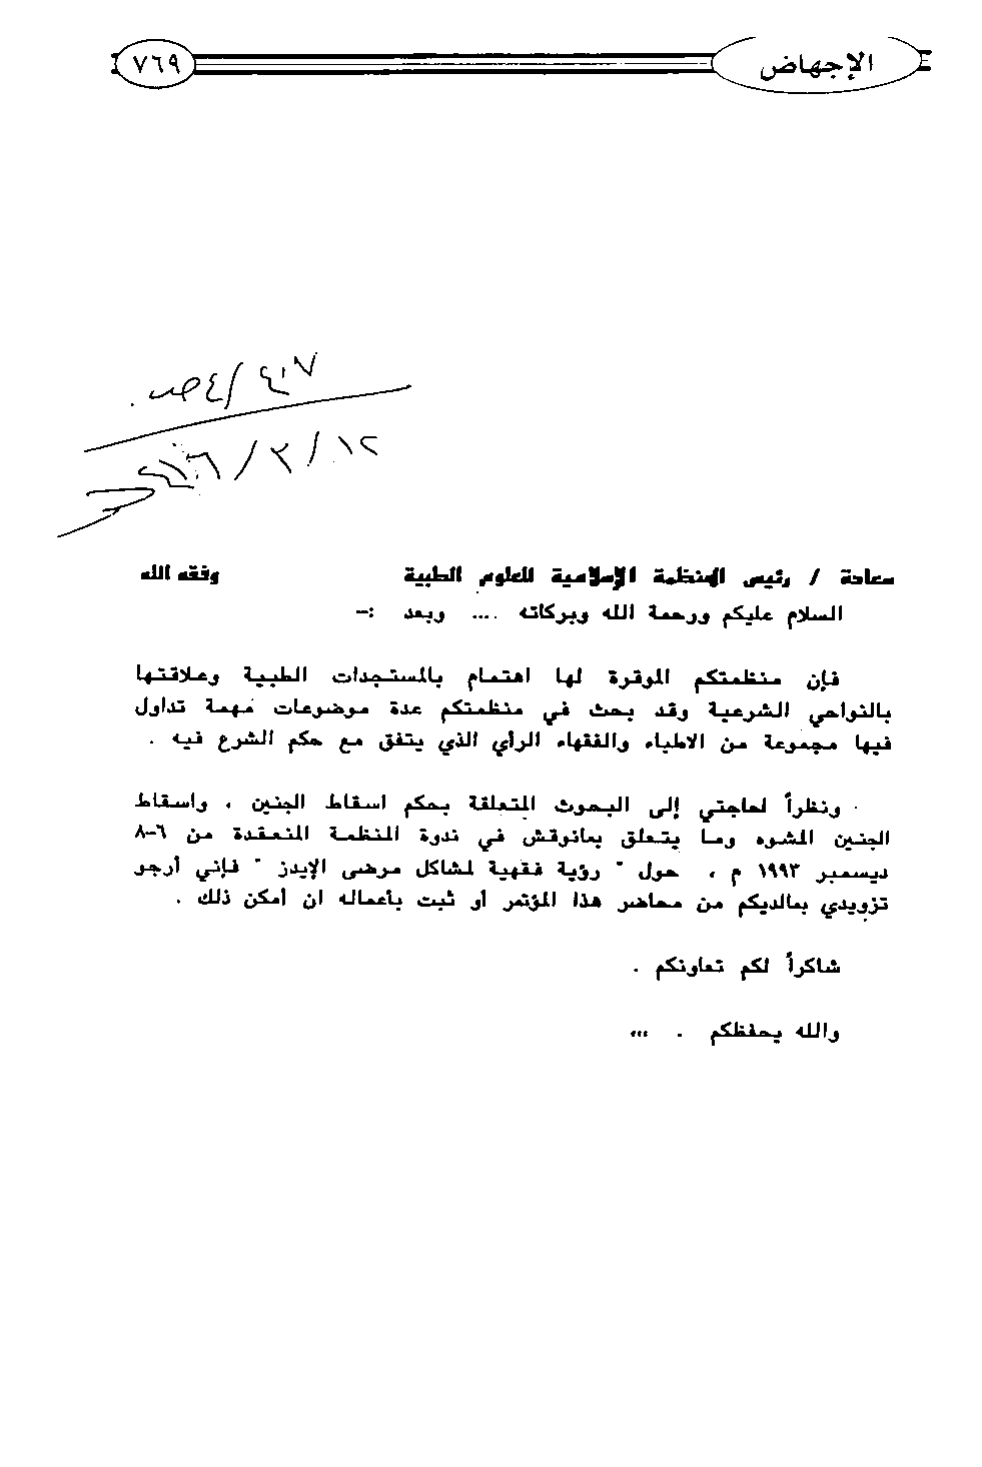 الإجهاض
٧٦٩
٤٠٧ / ٤ ص.
١٢ / ٣ /
سعادة / رئيس المنظمة الإسلامية للعلوم الطبية وفقه الله
السلام عليكم ورحمة الله وبركاته .... وبعد :-
فإن منظمتكم الموقرة لها اهتمام بالمستجدات الطبية وعلاقتها
بالنواحي الشرعية وقد بحث في منظمتكم عدة موضوعات مهمة تداول
فيها مجموعة من الاطباء والفقهاء الرأي الذي يتفق مع حكم الشرع فيه .
ونظراً لحاجتي إلى البحوث المتعلقة بحكم اسقاط الجنين ، واسقاط
الجنين المشوه وما يتعلق بمانوقش في ندوة المنظمة المنعقدة من ٦-٨
ديسمبر ١٩٩٣ م ، حول " رؤية فقهية لمشاكل مرضى الإيدز " فإني أرجو
تزويدي بمالديكم من محاضر هذا المؤتمر أو ثبت بأعماله ان أمكن ذلك .
شاكراً لكم تعاونكم .
والله يحفظكم . ،،،